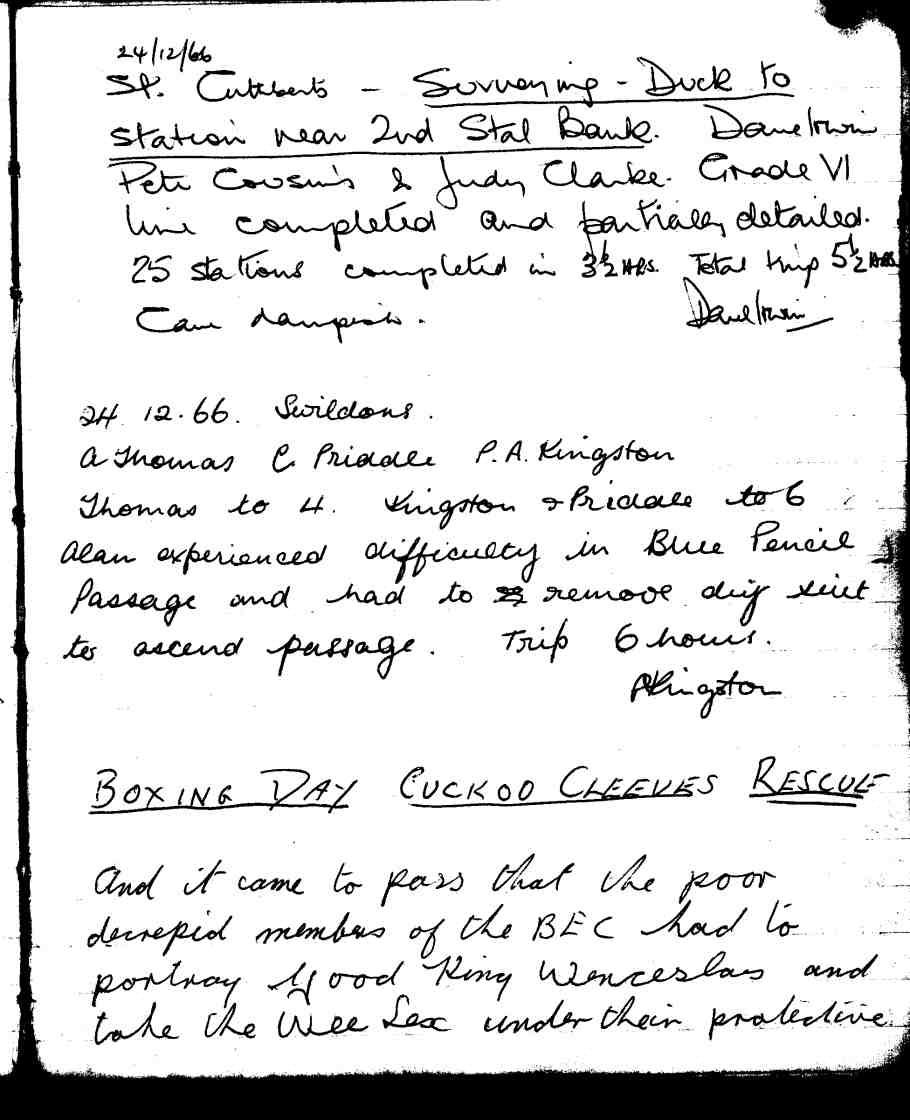 24/12/66
St. Cuthberts – Surveying - Duck to
station near 2nd Stal Bank. Dave Irwin
Pete Cousins & Judy Clarke. Grade VI
line completed and partially detailed.
25 stations completed in 3½ HRS. Total trip 5½ HRS
Cave dampish.
Dave Irwin
24.12.66. Swildons.
A Thomas C. Priddle P.A. Kingston
Thomas to 4. Kingston & Priddle to 6
Alan experienced difficulty in Blue Pencil
Passage and had to remove dry suit
to ascend passage. Trip 6 hours.
PKingston
BOXING DAY CUCKOO CLEEVES RESCUE
And it came to pass that the poor
decrepid members of the BEC had to
portray Good King Wenceslas and
take the Wee Sex under their protective